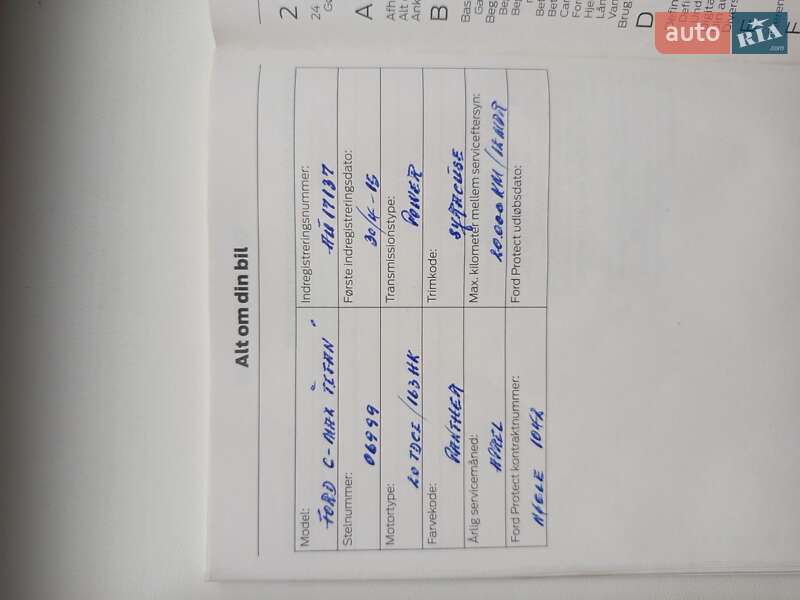 Alt om din bil
Model:
FORD C-MAX TITAN
Indregistreringsnummer:
17137
Stelnummer:
06999
Første indregistreringsdato:
30/4-15
Motortype:
2.0 TDCI/163 HK
Transmissionstype:
POWER
Farvekode:
PANTHER
Trimkode:
Årlig servicemåned:
APREL
Max. kilometer mellem serviceeftersyn:
20.000 KM/12 MDR
Ford Protect kontraktnummer:
NØGLE 1042
Ford Protect udløbsdato:
2
24
A
B
D
auto RIA.com